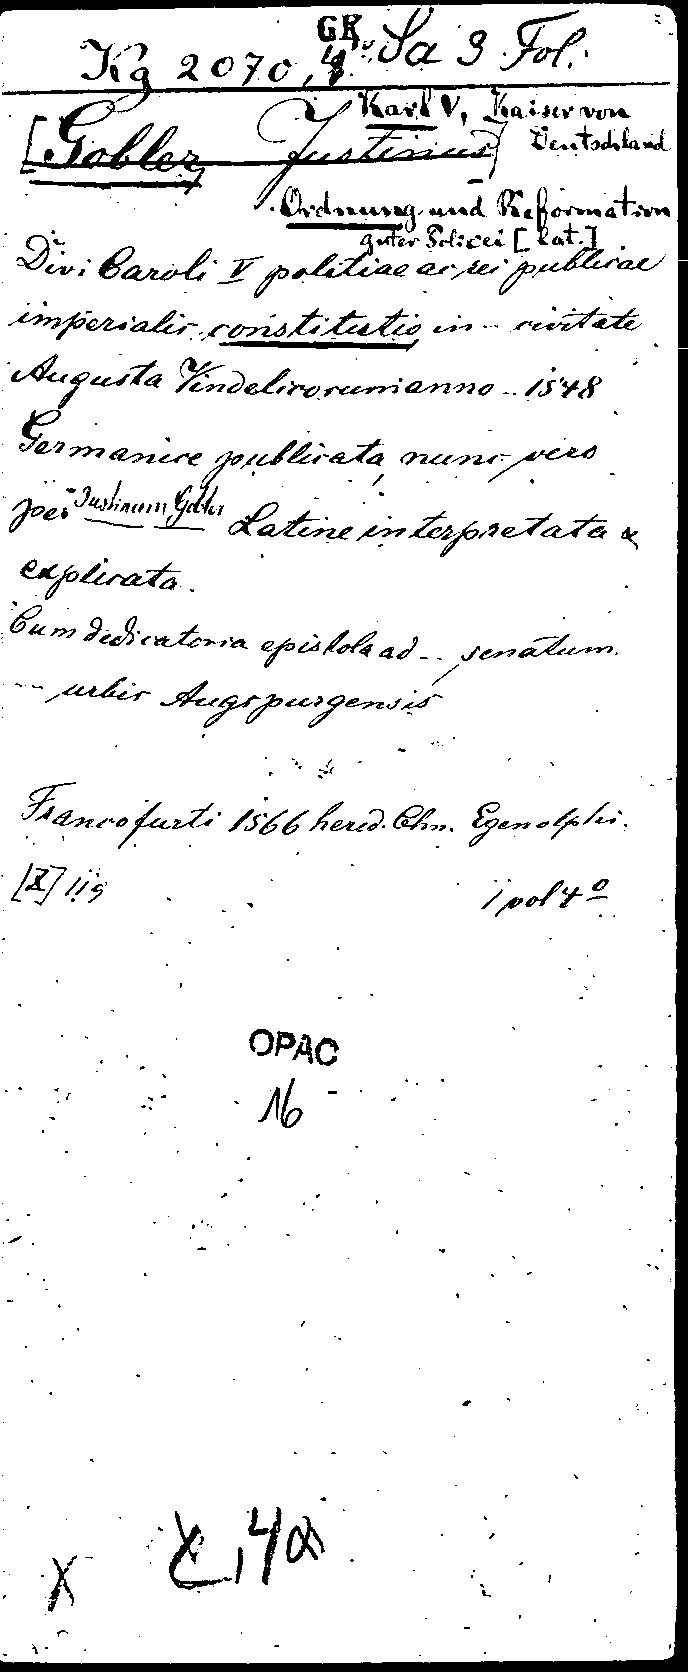 Kg 2070, 4° GR Sa 3 Fol.
Karl V, Kaiser von
Deutschland
[Gobler, Justinus]
Ordnung und Reformation
guter Polizei [lat.]
Divi Caroli V politiae ac rei publicae
imperialis constitutio in -- civitate
Augusta Vindelicorum anno -- 1548
Germanice publicata, nunc vero
per Justinum Gobler Latine interpretata &
explicata.
Cum dedicatoria epistola ad -- senatum
--- urbis Augspurgensis
Francofurti 1566 hered. Chn. Egenolphi.
[X] 119 1 vol 4°
OPAC
16
X